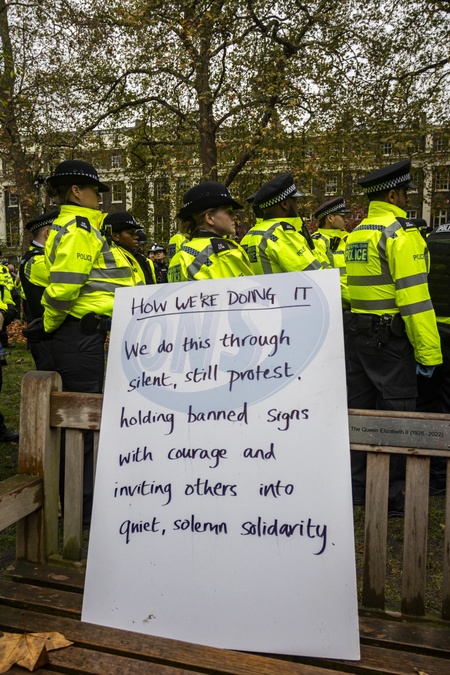 HOW WE'RE DOING IT
We do this through
silent, still protest.
holding banned signs
with courage and
inviting others into
quiet, solemn solidarity.
ONS
The Queen Elizabeth II (1926-2022)
POLICE
POLICE
POLICE
POLICE